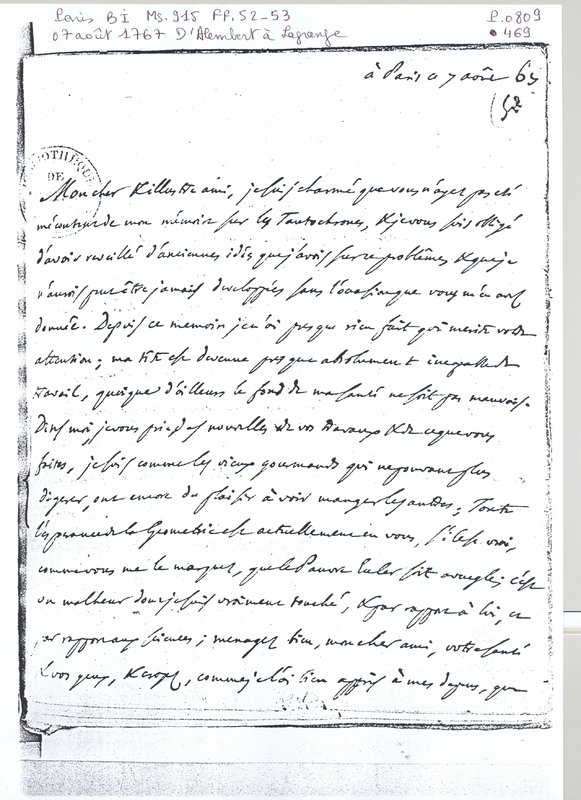 Paris BI Ms. 915 FF. 52-53
07 août 1767 D'Alembert à Lagrange
P. 0809
• 469
à Paris ce 7 août 67
52
OTHÈQUE
DE
Mon cher & illustre ami, je suis charmé que vous n'ayez pas été
mécontent de mon mémoire sur les Tautochrones, & je vous suis obligé
d'avoir reveillé d'anciennes idées que j'avois sur ce problême, & que je
n'aurois peut être jamais developpées sans l'occasion que vous m'en avez
donnée. Depuis ce memoire je n'ai presque rien fait qui merite votre
attention; ma tête est devenue presque absolument incapable de
travail, quoique d'ailleurs le fond de ma santé ne soit pas mauvais.
Dites moi, je vous prie, des nouvelles de vos travaux & de ce que vous
faites, je suis comme les vieux gourmands qui ne pouvant plus
digerer, ont encore du plaisir à voir manger les autres; Toute
l'esperance de la Geometrie est actuellement en vous, s'il est vrai,
comme vous me le marquez, que le Pauvre Euler soit aveugle; c'est
un malheur dont je suis vraiment touché, & par rapport à lui, et
par rapport aux sciences; menagez bien, mon cher ami, votre santé
& vos yeux, & croyez, comme je l'ai bien appris à mes depens, que